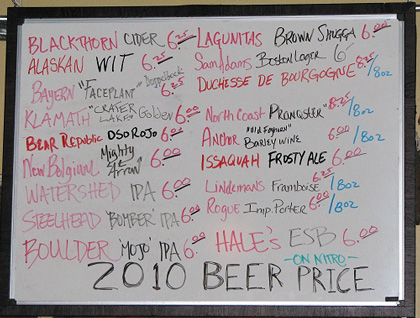 BLACKTHORN CIDER 6.25
ALASKAN WIT 6.25
BAYERN "FACEPLANT" Doppelbock 6.25
KLAMATH "CRATER LAKE" Golden 6.00
BEAR REPUBLIC DSO ROJO 6.00
New Belgium Mighty Arrow 6.00
WATERSHED IPA 6.00
STEELHEAD 'BOMBER' IPA 6.00
BOULDER 'MOJO' IPA 6.00
LAGUNITAS BROWN SHUGGA 6.00
Sam Adams Boston Lager 6
DUCHESSE DE BOURGOGNE 8.25/8oz
North Coast PRANQSTER 8.25/8oz
Anchor BARLEYWINE 6.00/8oz
ISSAQUAH FROSTY ALE 6.00
Lindemans Framboise 6.25/8oz
Rogue Imp. Porter 6.00/8oz
HALE'S ESB 6.00
-ON NITRO-
2010 BEER PRICE